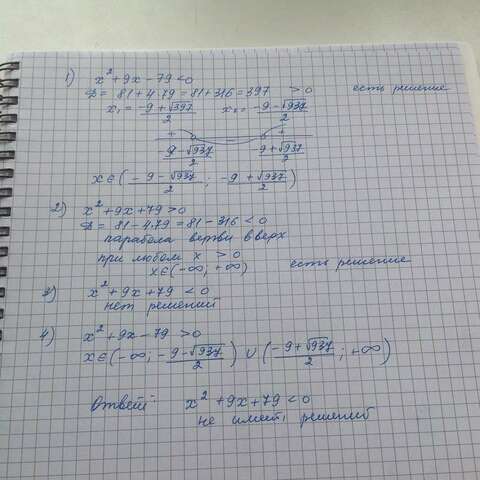 1) x² + 9x - 79 < 0
D = 81 + 4·79 = 81 + 316 = 397 > 0 есть решение
x₁ = (-9 + √397)/2 x₂ = (-9 - √937)/2
+ - +
(-9 - √937)/2 (-9 + √937)/2
x ∈ ( (-9 - √937)/2 ; (-9 + √937)/2 )
2) x² + 9x + 79 > 0
D = 81 - 4·79 = 81 - 316 < 0
парабола ветви вверх
при любом x > 0
x ∈ (-∞; +∞) есть решение
3) x² + 9x + 79 < 0
нет решений
4) x² + 9x - 79 > 0
x ∈ (-∞; (-9 - √937)/2 ) ∪ ( (-9 + √937)/2 ; +∞)
Ответ: x² + 9x + 79 < 0
не имеет решений